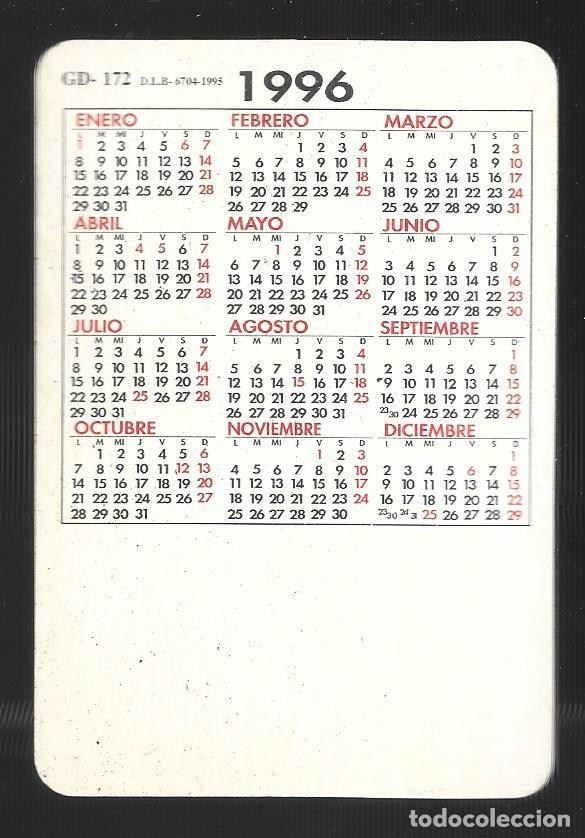 GD- 172 D.L.B- 6704-1995 1996
ENERO FEBRERO MARZO
L M MI J V S D L M MI J V S D L M MI J V S D
1 2 3 4 5 6 7 1 2 3 4 1 2 3
8 9 10 11 12 13 14 5 6 7 8 9 10 11 4 5 6 7 8 9 10
15 16 17 18 19 20 21 12 13 14 15 16 17 18 11 12 13 14 15 16 17
22 23 24 25 26 27 28 19 20 21 22 23 24 25 18 19 20 21 22 23 24
29 30 31 26 27 28 29 25 26 27 28 29 30 31
ABRIL MAYO JUNIO
L M MI J V S D L M MI J V S D L M MI J V S D
1 2 3 4 5 6 7 1 2 3 4 5 1 2
8 9 10 11 12 13 14 6 7 8 9 10 11 12 3 4 5 6 7 8 9
15 16 17 18 19 20 21 13 14 15 16 17 18 19 10 11 12 13 14 15 16
22 23 24 25 26 27 28 20 21 22 23 24 25 26 17 18 19 20 21 22 23
29 30 27 28 29 30 31 24 25 26 27 28 29 30
JULIO AGOSTO SEPTIEMBRE
L M MI J V S D L M MI J V S D L M MI J V S D
1 2 3 4 5 6 7 1 2 3 4 1
8 9 10 11 12 13 14 5 6 7 8 9 10 11 2 3 4 5 6 7 8
15 16 17 18 19 20 21 12 13 14 15 16 17 18 9 10 11 12 13 14 15
22 23 24 25 26 27 28 19 20 21 22 23 24 25 16 17 18 19 20 21 22
29 30 31 26 27 28 29 30 31 23 30 24 25 26 27 28 29
OCTUBRE NOVIEMBRE DICIEMBRE
L M MI J V S D L M MI J V S D L M MI J V S D
1 2 3 4 5 6 1 2 3 1
7 8 9 10 11 12 13 4 5 6 7 8 9 10 2 3 4 5 6 7 8
14 15 16 17 18 19 20 11 12 13 14 15 16 17 9 10 11 12 13 14 15
21 22 23 24 25 26 27 18 19 20 21 22 23 24 16 17 18 19 20 21 22
28 29 30 31 25 26 27 28 29 30 23 30 24 31 25 26 27 28 29
todocoleccion